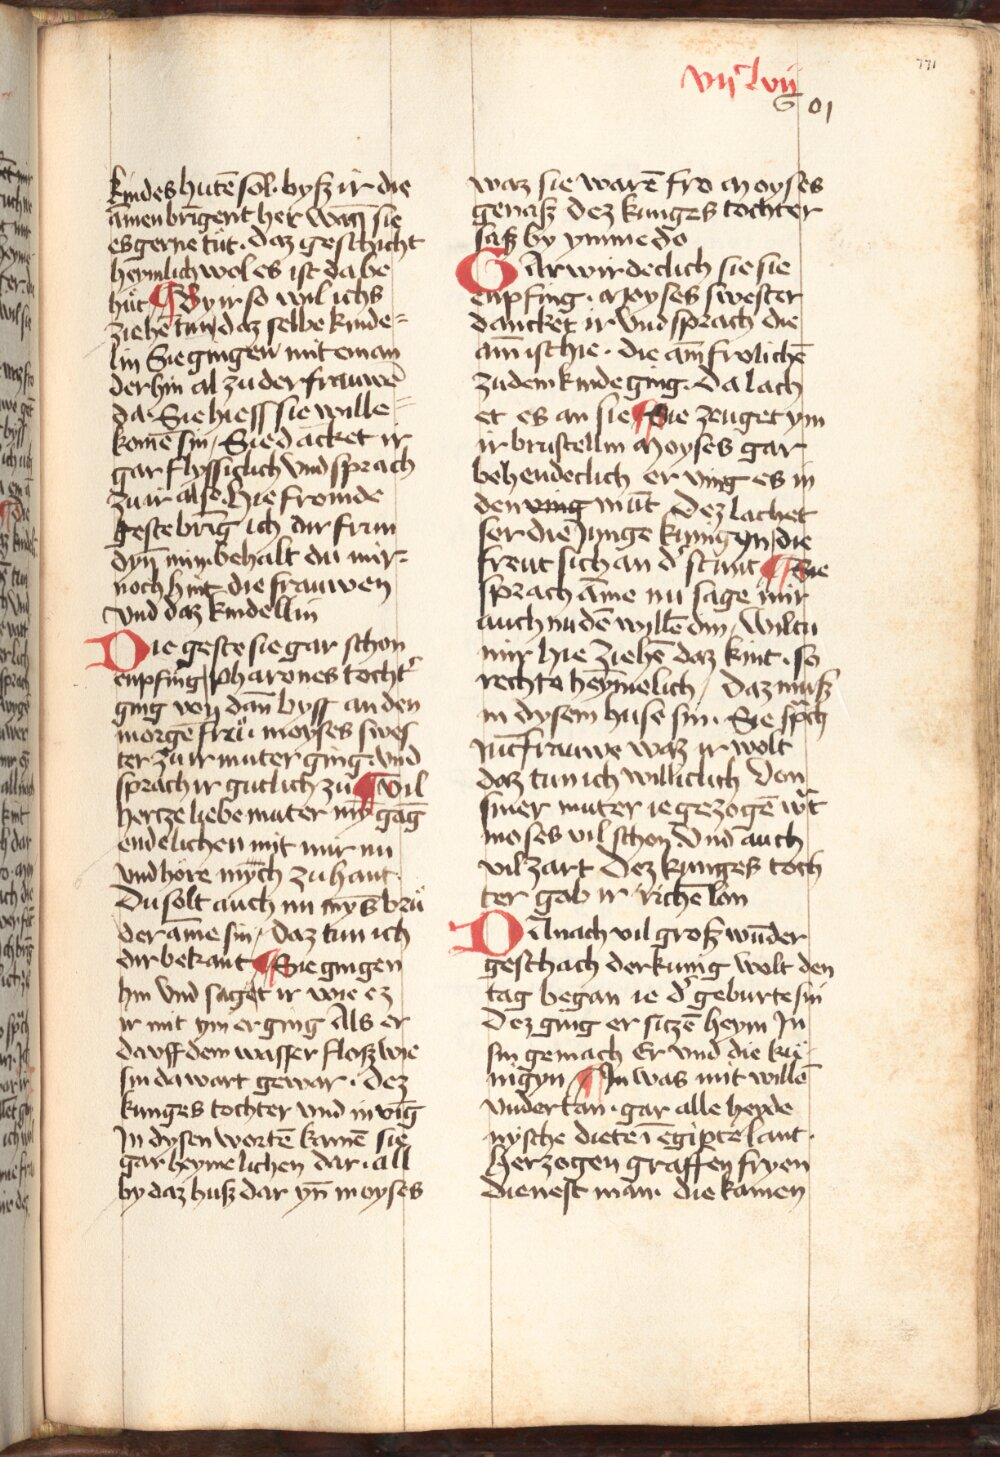 771
vijᶜ lvij
G 01
kindes hutē sol · byß ir die
amen bringent her wan sie
es gerne tůt · daz geschicht
heymlich wol es ist da be
hůt ¶ By ir so wil ichs
ziehē tun daz selbe kinde⸗
lin Sie gingen mit eman
der hin al zu der frauwē
da · Sie hiesſ sie wille⸗
komē sin / Sie dācket ir
gar flyssiglich vnd sprach
zu ir also · Hie fromde
geste bring ich dir frun
dyn mim behalt du mir ·
noch hint die frauwen
vnd daz kindellin
Die geste sie gar schon
enpfing / Pharones tocht᷑
ging von dañ bysſ an den
morgē frů · moyses swes
ter zu ir muter ging · vnd
sprach ir gutlich zů ¶ Vil
hertze liebe muter my̅ gāg
endelichen mit mir nu
vnd hore mych zu hant ·
Du solt auch nu my̅s brů
der āme sin / daz tun ich
dir bekant ¶ Sie gingen
hin vnd saget ir wie ez
ir mit ym erging Als er
dauff dem wasser floß wie
sin da wart gewar · dez
kunges tochter vnd in vīg
In dysen wortē kamē sie
gar heymelichen dar · all
by daz huß dar yn̄ moyses
waz sie warē fro moyses
genaß dez kunges tochter
saß by ymme do
Gar wirdeclich sie sie
enpfing · moyses swester
dancket ir vnd sprach die
am̄ ist hie · die am̄ frolichē
zu dem kinde ging · da lach
et es an sie ¶ Sie zeuget ym
ir brustellin moyses gar
behendeclich er ving es in
den ving mūt Dez lachet
ser die Junge kunigyn / die
freut sich an d᷑ stunt ¶ Sie
sprach āme nu sage mir
auch nu dē wyllē din / wiltu
mir hie ziehē daz kint · so
rechto heymelich / daz muß
in dysem huse sin · Sie sp᷑ch
Juncfrauwe waz ir wolt
daz tun ich williclich von
siner muter ie gezogē w᷑t
moses vil schon vnd auch
vil zart Dez kunges toch
ter gab ir richē lon
Dar nach vil groß wūder
geschach der kunig wolt den
tag began ie d᷑ geburte sin
Dez ging er sitzē heym In
sin gemach Er vnd die ků
nigyn ¶ In was mit willē
vndertan · gar alle heyde
nysche diete ī egipte lant ·
Herzogen graffen fryen
dienest man · die kamen